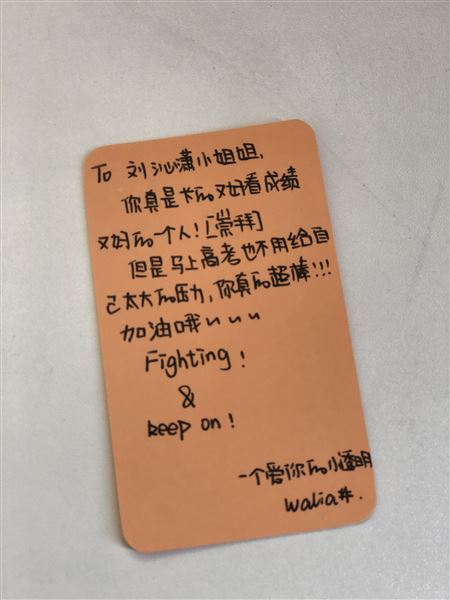 To 刘沁潇小姐姐,
你真是长的又好看成绩
又好的一个人![崇拜]
但是马上高考也不用给自
己太大的压力,你真的超棒!!!
加油哦~~~
Fighting!
&
keep on!
一个爱你的小透明
walia#.